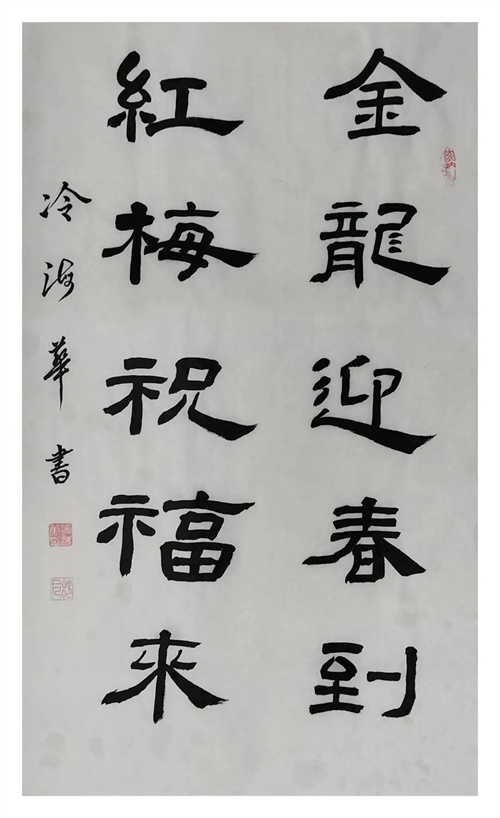 金龍迎春到
紅梅祝福來
冷海華書